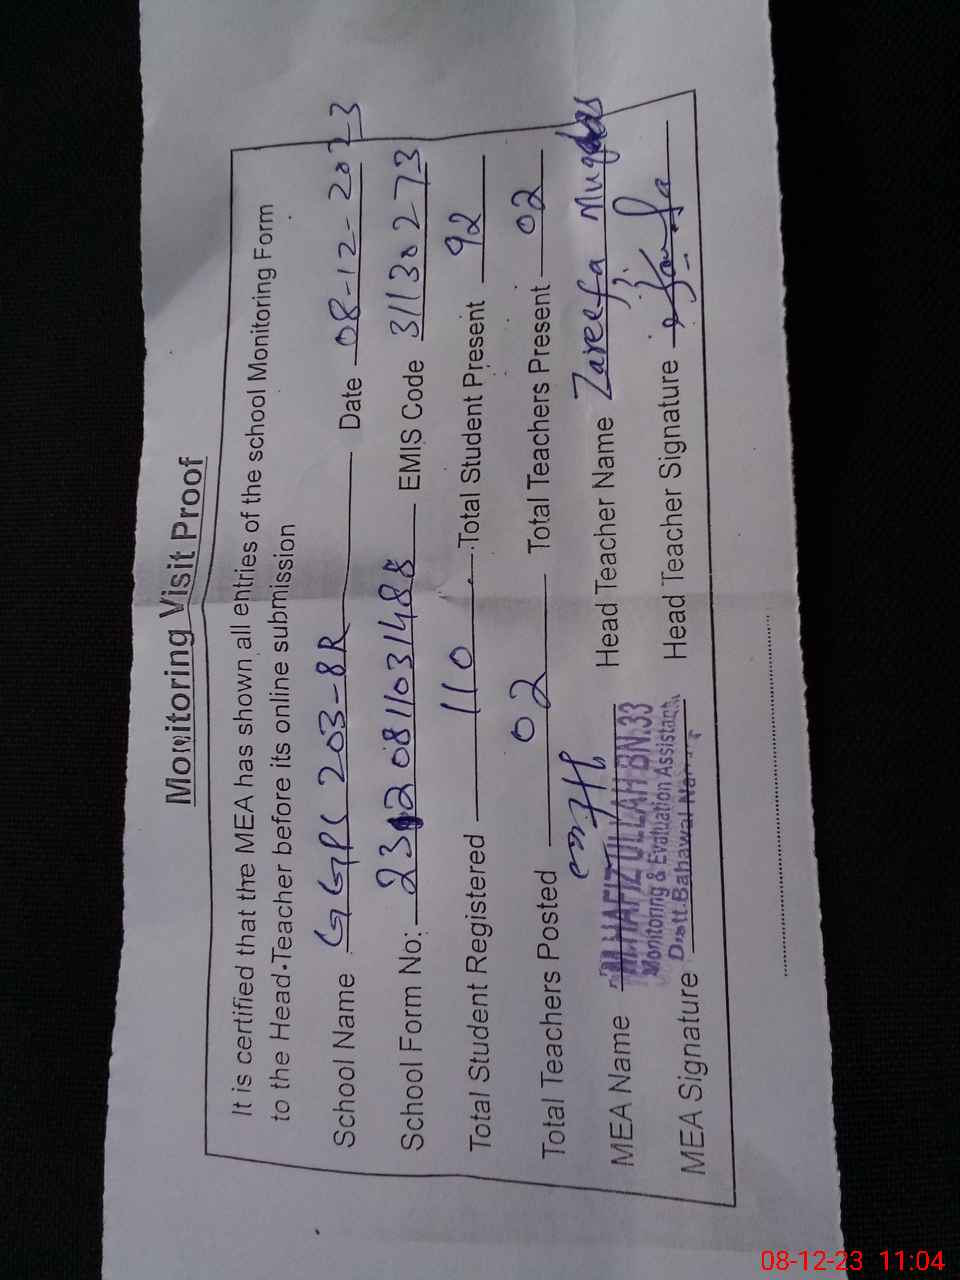 Monitoring Visit Proof
It is certified that the MEA has shown all entries of the school Monitoring Form
to the Head-Teacher before its online submission
School Name GGPS 203-8R Date 08-12-2023
School Form No: 23120811031488 EMIS Code 31130273
Total Student Registered 110 Total Student Present 92
Total Teachers Posted 02 Total Teachers Present 02
MEA Name HAFIZ ULLAH BN.33 Head Teacher Name Zareefa Muqdas
Monitoring & Evaluation Assistant
MEA Signature Distt. Bahawal Head Teacher Signature
08-12-23 11:04